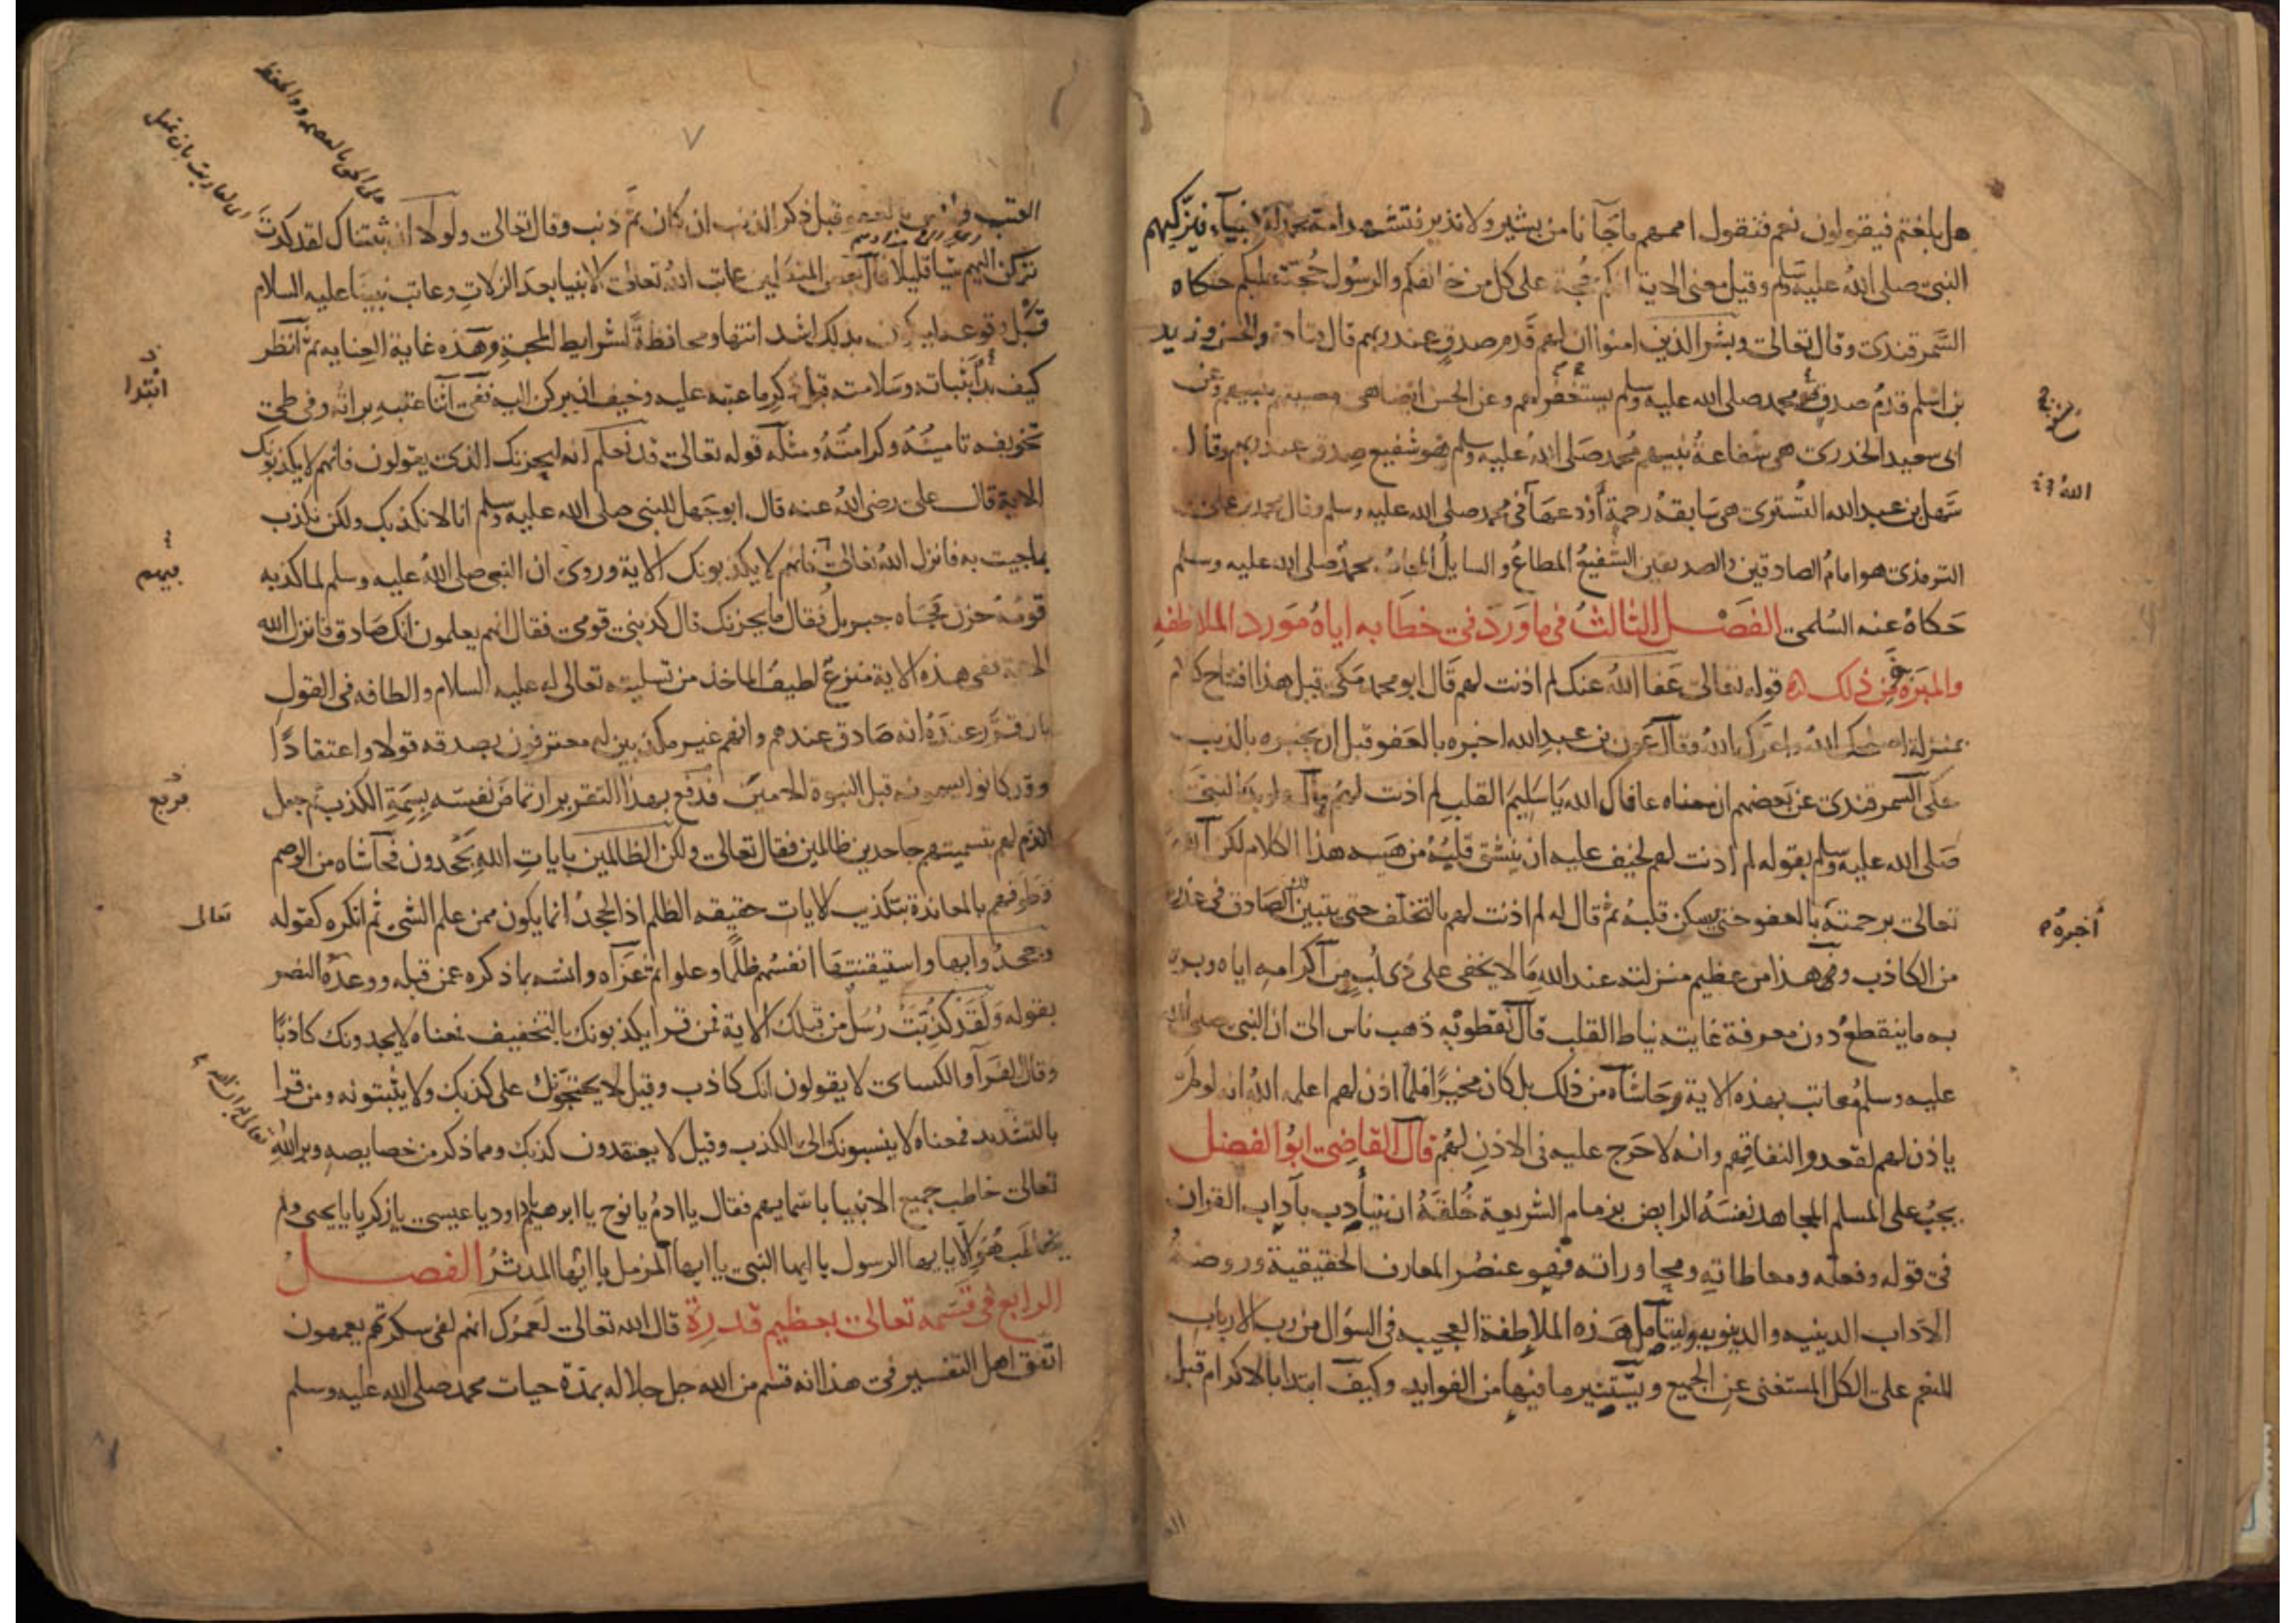 هل بلغتم فيقولون نعم فتقول اممهم ما جآنا من بشير ولا نذير فتشهد امة محمد للانبيآء فيزكيهم
النبى صلى الله عليه وسلم وقيل معنى الاية انكم حجة على كل من خالفكم والرسول حجة عليكم حكاه
السمرقندى وقال تعالى وبشر الذين امنوا ان لهم قدم صدق عند ربهم قال قتادة والحسن وزيد
بن اسلم قدم صدق محمد صلى الله عليه وسلم يشفع لهم وعن الحسن ايضا هى مصيبتهم بنبيهم وعن
ابى سعيد الخدرى هى شفاعة نبيهم محمد صلى الله عليه وسلم هو شفيع صدق عند ربهم وقال
سهل بن عبد الله التسترى هى سابقة رحمة أودعها فى محمد صلى الله عليه وسلم وقال محمد بن على
الترمذى هو امام الصادقين والصديقين الشفيع المطاع والسايل المجاب محمد صلى الله عليه وسلم
حكاه عنه السلمى الفصل الثالث فى ما ورد فى خطابه اياه مورد الملاطفه
والمبرة فمن ذلك قوله تعالى عفا الله عنك لم اذنت لهم قال ابو محمد مكى قيل هذا افتتاح كلام
بمنزلة اصلحك الله واعزك الله وقال عون بن عبد الله اخبره بالعفو قبل ان يخبره بالذنب
حكى السمرقندى عن بعضهم ان معناه عافاك الله يا سليم القلب لم اذنت لهم قال ولو بدأ النبى
صلى الله عليه وسلم بقوله لم اذنت لهم لخيف عليه ان ينشق قلبه من هيبة هذا الكلام لكن الله
تعالى برحمته بالعفو حتى يسكن قلبه ثم قال له لم اذنت لهم بالتخلف حتى يتبين لك الصادق فى عذره
من الكاذب وفى هذا من عظيم منزلته عند الله ما لا يخفى على ذى لب من اكرامه اياه وبره
به ما ينقطع دون معرفة غايته نياط القلب قال نفطويه ذهب ناس الى ان النبى صلى الله
عليه وسلم معاتب بهذه الاية وحاشاه من ذلك بل كان مخيرا فلما اذن لهم اعلمه الله انه لو لم
ياذن لهم لقعدوا لنفاقهم وانه لا حرج عليه فى الاذن لهم قال القاضى ابو الفضل
يجب على المسلم المجاهد نفسه الرايض بزمام الشريعة خلقه ان يتأدب بآداب القران
فى قوله وفعله ومعاطاته ومحاوراته فهو عنصر المعارف الحقيقية وروضة
الآداب الدينيه والدنيويه وليتأمل هذه الملاطفة العجيبه فى السؤال من رب الارباب
المنعم على الكل المستغنى عن الجميع ويستثير ما فيها من الفوايد وكيف ابتدا بالاكرام قبل
أخبره
٧
العتب قبل ذكر الذنب ان كان ثم ذنب وقال تعالى ولولا ان ثبتناك لقد كدت
تركن اليهم شيا قليلا قال بعض المتكلمين عاتب الله تعالى الانبيا بعد الزلات وعاتب نبينا عليه السلام
قبل وقوعه ليكون بذلك اشد انتها ومحافظة لشرايط المحبة وهذه غاية العنايه ثم انظر
كيف بدأ بثباته وسلامته قبل ذكر ما عتبه عليه وخيف ان يركن اليه ففى اثنا عتبه براته وفى طى
تخويفه تامينه وكرامته ومثله قوله تعالى قد نعلم انه ليحزنك الذى يقولون فانهم لا يكذبونك
الاية قال على رضى الله عنه قال ابو جهل للنبى صلى الله عليه وسلم انا لا نكذبك ولكن نكذب
بما جيت به فانزل الله تعالى فانهم لا يكذبونك الاية وروى ان النبى صلى الله عليه وسلم لما كذبه
قومه حزن فجاه جبريل فقال ما يحزنك قال كذبنى قومى فقال انهم يعلمون انك صادق فانزل الله
الاية ففى هذه الاية منزع لطيف الماخذ من تسليته تعالى له عليه السلام والطافه فى القول
بان قرر عنده انه صادق عندهم وانهم غير مكذبين له معترفون بصدقه قولا واعتقادا
وقد كانوا يسمونه قبل النبوة الامين فدفع بهذا التقرير ارتماض نفسه بسمة الكذب ثم جعل
الذم لهم بتسميتهم جاحدين ظالمين فقال تعالى ولكن الظالمين بايات الله يجحدون فحاشاه من الوصم
وطوقهم بالمعاندة بتكذيب الايات حقيقه الظلم اذ الجحد انما يكون ممن علم الشى ثم انكره كقوله
وجحدوا بها واستيقنتها انفسهم ظلما وعلوا ثم عزاه وانسه بما ذكره عمن قبله ووعده النصر
بقوله ولقد كذبت رسل من قبلك الاية فمن قرا يكذبونك بالتخفيف فمعناه لا يجدونك كاذبا
وقال الفرآ والكساى لا يقولون انك كاذب وقيل لا يحتجون على كذبك ولا يثبتونه ومن قرا
بالتشديد فمعناه لا ينسبونك الى الكذب وقيل لا يعتقدون كذبك ومما ذكر من خصايصه وبر الله
تعالى خاطب جميع الانبيا باسمايهم فقال يا ادم يا نوح يا ابرهيم يا داود يا عيسى يا زكريا يا يحيى ولم
يخاطب هو الا يا ايها الرسول يا ايها النبى يا ايها المزمل يا ايها المدثر الفصل
الرابع فى قسمه تعالى بعظيم قدره قال الله تعالى لعمرك انهم لفى سكرتهم يعمهون
اتفق اهل التفسير فى هذا انه قسم من الله جل جلاله بمدة حيات محمد صلى الله عليه وسلم
ابتدا
تعالى